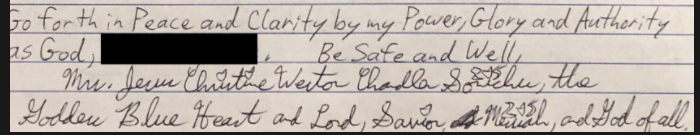 Go forth in Peace and Clarity by my Power, Glory and Authority
as God, . Be Safe and Well,
Mrs. Jesus Christine Weston Chadla the
Godden Blue Heart and Lord, Savior, and God of all,